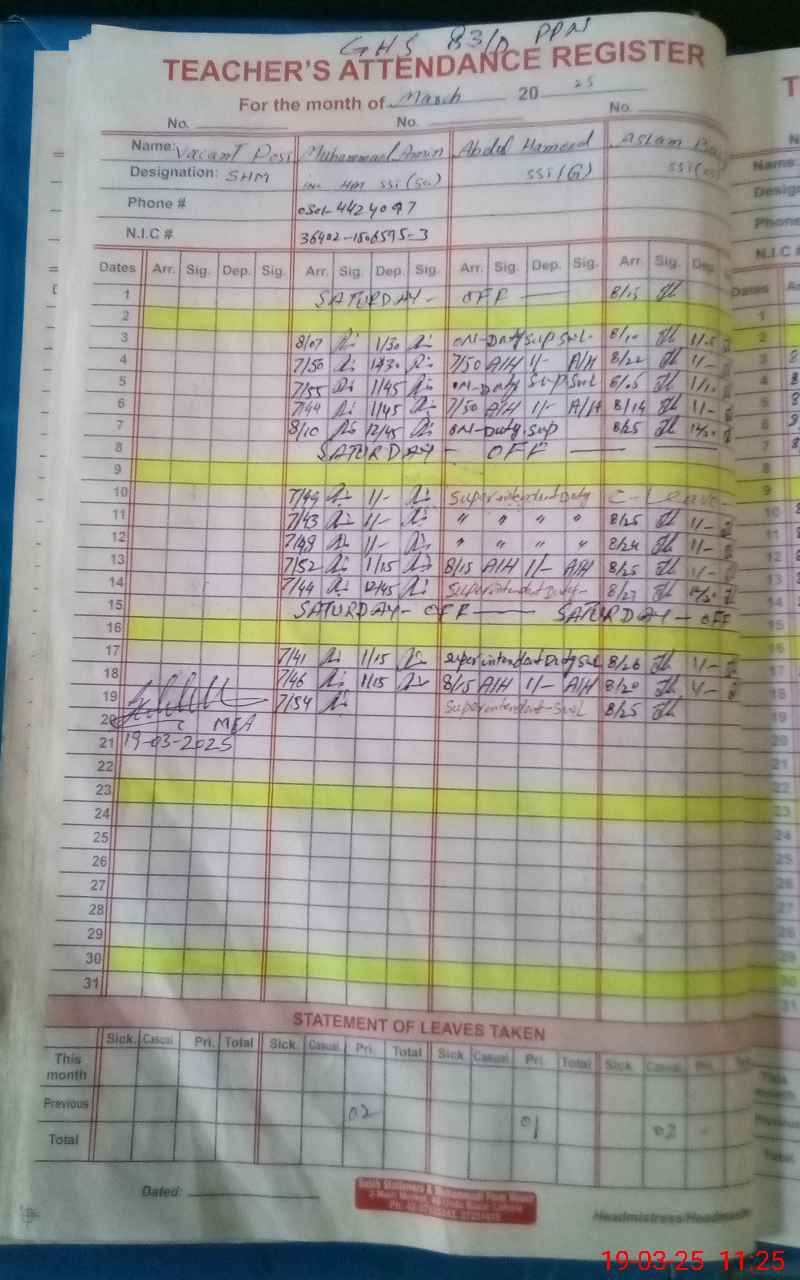 GHS 83/D PPN
TEACHER'S ATTENDANCE REGISTER
For the month of March 20 25
No. No. No.
Name: Vacant Post Muhammad Amin Abdul Hameed Aslam
Designation: SHM HM SSI (Sci) SSI (G) SSI
Phone # 0301-4424097
N.I.C # 36402-1506595-3
Dates Arr. Sig. Dep. Sig. Arr. Sig. Dep. Sig. Arr. Sig. Dep. Sig. Arr. Sig. Dep.
1 SATURDAY - OFF 8/15
2
3 8/07 1/30 ON-Duty Sup 8/10
4 7/50 7/50 A/H 1/- A/H 8/22 1/-
5 7/55 1/45 ON-Duty Sup 1/10
6 7/44 1/45 7/50 A/H 1/- A/H 8/14 1/-
7 8/10 12/45 ON-Duty Sup 8/25
8 SATURDAY - OFF
9
10 7/49 1/- Superintendent Duty C-Leave
11 7/43 1/- " " " " 8/25 1/-
12 7/48 1/- " " " " 8/24 1/-
13 7/52 1/15 8/15 A/H 1/- A/H 8/25 1/-
14 7/44 12/45 Superintendent Duty- 8/23
15 SATURDAY- OFF SATURDAY - OFF
16
17 7/41 1/15 Superintendent Duty 8/26 1/-
18 7/46 1/15 8/15 A/H 1/- A/H 8/20
19 7/54 Superintendent- 8/25
20 MEA
21 19-03-2025
22
23
24
25
26
27
28
29
30
31
STATEMENT OF LEAVES TAKEN
Sick. Casual Pri. Total Sick. Casual Pri. Total Sick. Casual Pri. Total Sick. Casual Pri.
This month
Previous 02 01 02 -
Total
Dated:
Headmistress/Headmaster
19-03-25 11:25